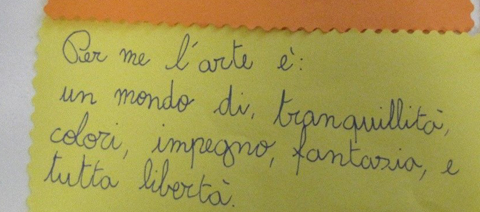 Per me l'arte è:
un mondo di, tranquillità,
colori, impegno, fantasia, e
tutta libertà.